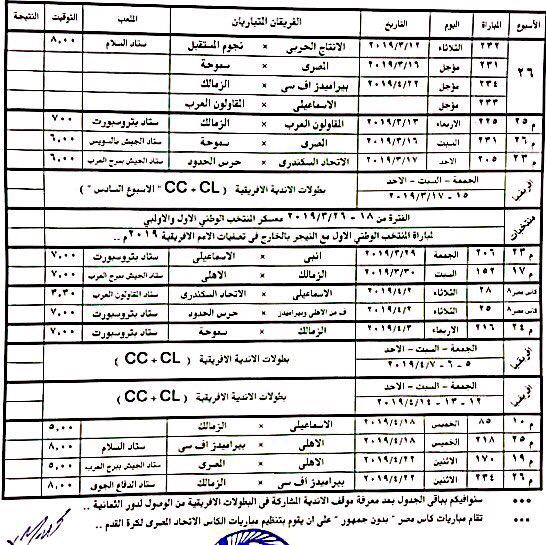 الأسبوع المباراة اليوم التاريخ الفريقان المتباريان الملعب التوقيت النتيجة
٢٦ ٢٣٢ الثلاثاء ٢٠١٩/٣/١٢ الانتاج الحربي × نجوم المستقبل ستاد السلام ٨,٠٠
٢٣١ مؤجل ٢٠١٩/٣/١٦ المصرى × سموحة
٢٣٤ مؤجل ٢٠١٩/٤/٢٢ بيراميدز اف سى × الزمالك
٢٣٣ مؤجل الاسماعيلى × المقاولون العرب
م ٢٥ ٢٢٥ الاربعاء ٢٠١٩/٣/١٣ المقاولون العرب × الزمالك ستاد بتروسبورت ٧٠٠
م ٢٦ ٢٣١ السبت ٢٠١٩/٣/١٦ المصرى × سموحة ستاد الجيش بالسويس ٦,٠٠
م ٢٣ ٢٠٥ الاحد ٢٠١٩/٣/١٧ الاتحاد السكندرى × حرس الحدود ستاد الجيش ببرج العرب ٦,٠٠
افريقيا الجمعة – السبت – الاحد بطولات الاندية الافريقية ( CC + CL ) " الاسبوع السادس "
١٥ - ٢٠١٩/٣/١٧
منتخبات الفترة من ١٨ - ٢٠١٩/٣/٢٦ معسكر المنتخب الوطني الاول والاولمبي
لمباراة المنتخب الوطني الاول مع النيجر بالخارج فى تصفيات الامم الافريقية ٢٠١٩ م ..
م ٢٣ ٢٠٦ الجمعة ٢٠١٩/٣/٢٩ انبى × الاسماعيلى ستاد بتروسبورت ٧,٠٠
م ١٧ ١٥٢ السبت ٢٠١٩/٣/٣٠ الزمالك × الاهلى ستاد الجيش ببرج العرب ٧,٠٠
كاس مصر ٨ ٢٨ الثلاثاء ٢٠١٩/٤/٢ الاسماعيلى × الاتحاد السكندرى ستاد المقاولون العرب ٣,٣٠
كاس مصر ٨ ٢٥ الثلاثاء ٢٠١٩/٤/٢ ف من الاهلى وبيراميدز × حرس الحدود ستاد بتروسبورت ٧,٠٠
م ٢٤ ٢١٦ الاربعاء ٢٠١٩/٤/٣ الزمالك × سموحة ستاد بتروسبورت ٧,٠٠
افريقيا الجمعة – السبت – الاحد بطولات الاندية الافريقية ( CC + CL )
٥ – ٦ – ٢٠١٩/٤/٧
افريقيا الجمعة – السبت – الاحد بطولات الاندية الافريقية ( CC + CL )
١٢ – ١٣ – ٢٠١٩/٤/١٤
م ١٠ ٨٥ الخميس ٢٠١٩/٤/١٨ الاسماعيلى × الزمالك ٥,٠٠
م ٢٥ ٢١٨ الخميس ٢٠١٩/٤/١٨ الاهلى × بيراميدز اف سى ستاد السلام ٨,٠٠
م ١٩ ١٧٠ الاثنين ٢٠١٩/٤/٢٢ الاهلى × المصرى ستاد الجيش ببرج العرب ٥,٠٠
م ٢٦ ٢٣٤ الاثنين ٢٠١٩/٤/٢٢ بيراميدز اف سى × الزمالك ستاد الدفاع الجوى ٨,٠٠
••• سنوافيكم بباقى الجدول بعد معرفة موقف الاندية المشاركة فى البطولات الافريقية من الوصول لدور الثمانية ..
••• تقام مباريات كاس مصر " بدون جمهور " على ان يقوم بتنظيم مباريات الكاس الاتحاد المصرى لكرة القدم ..